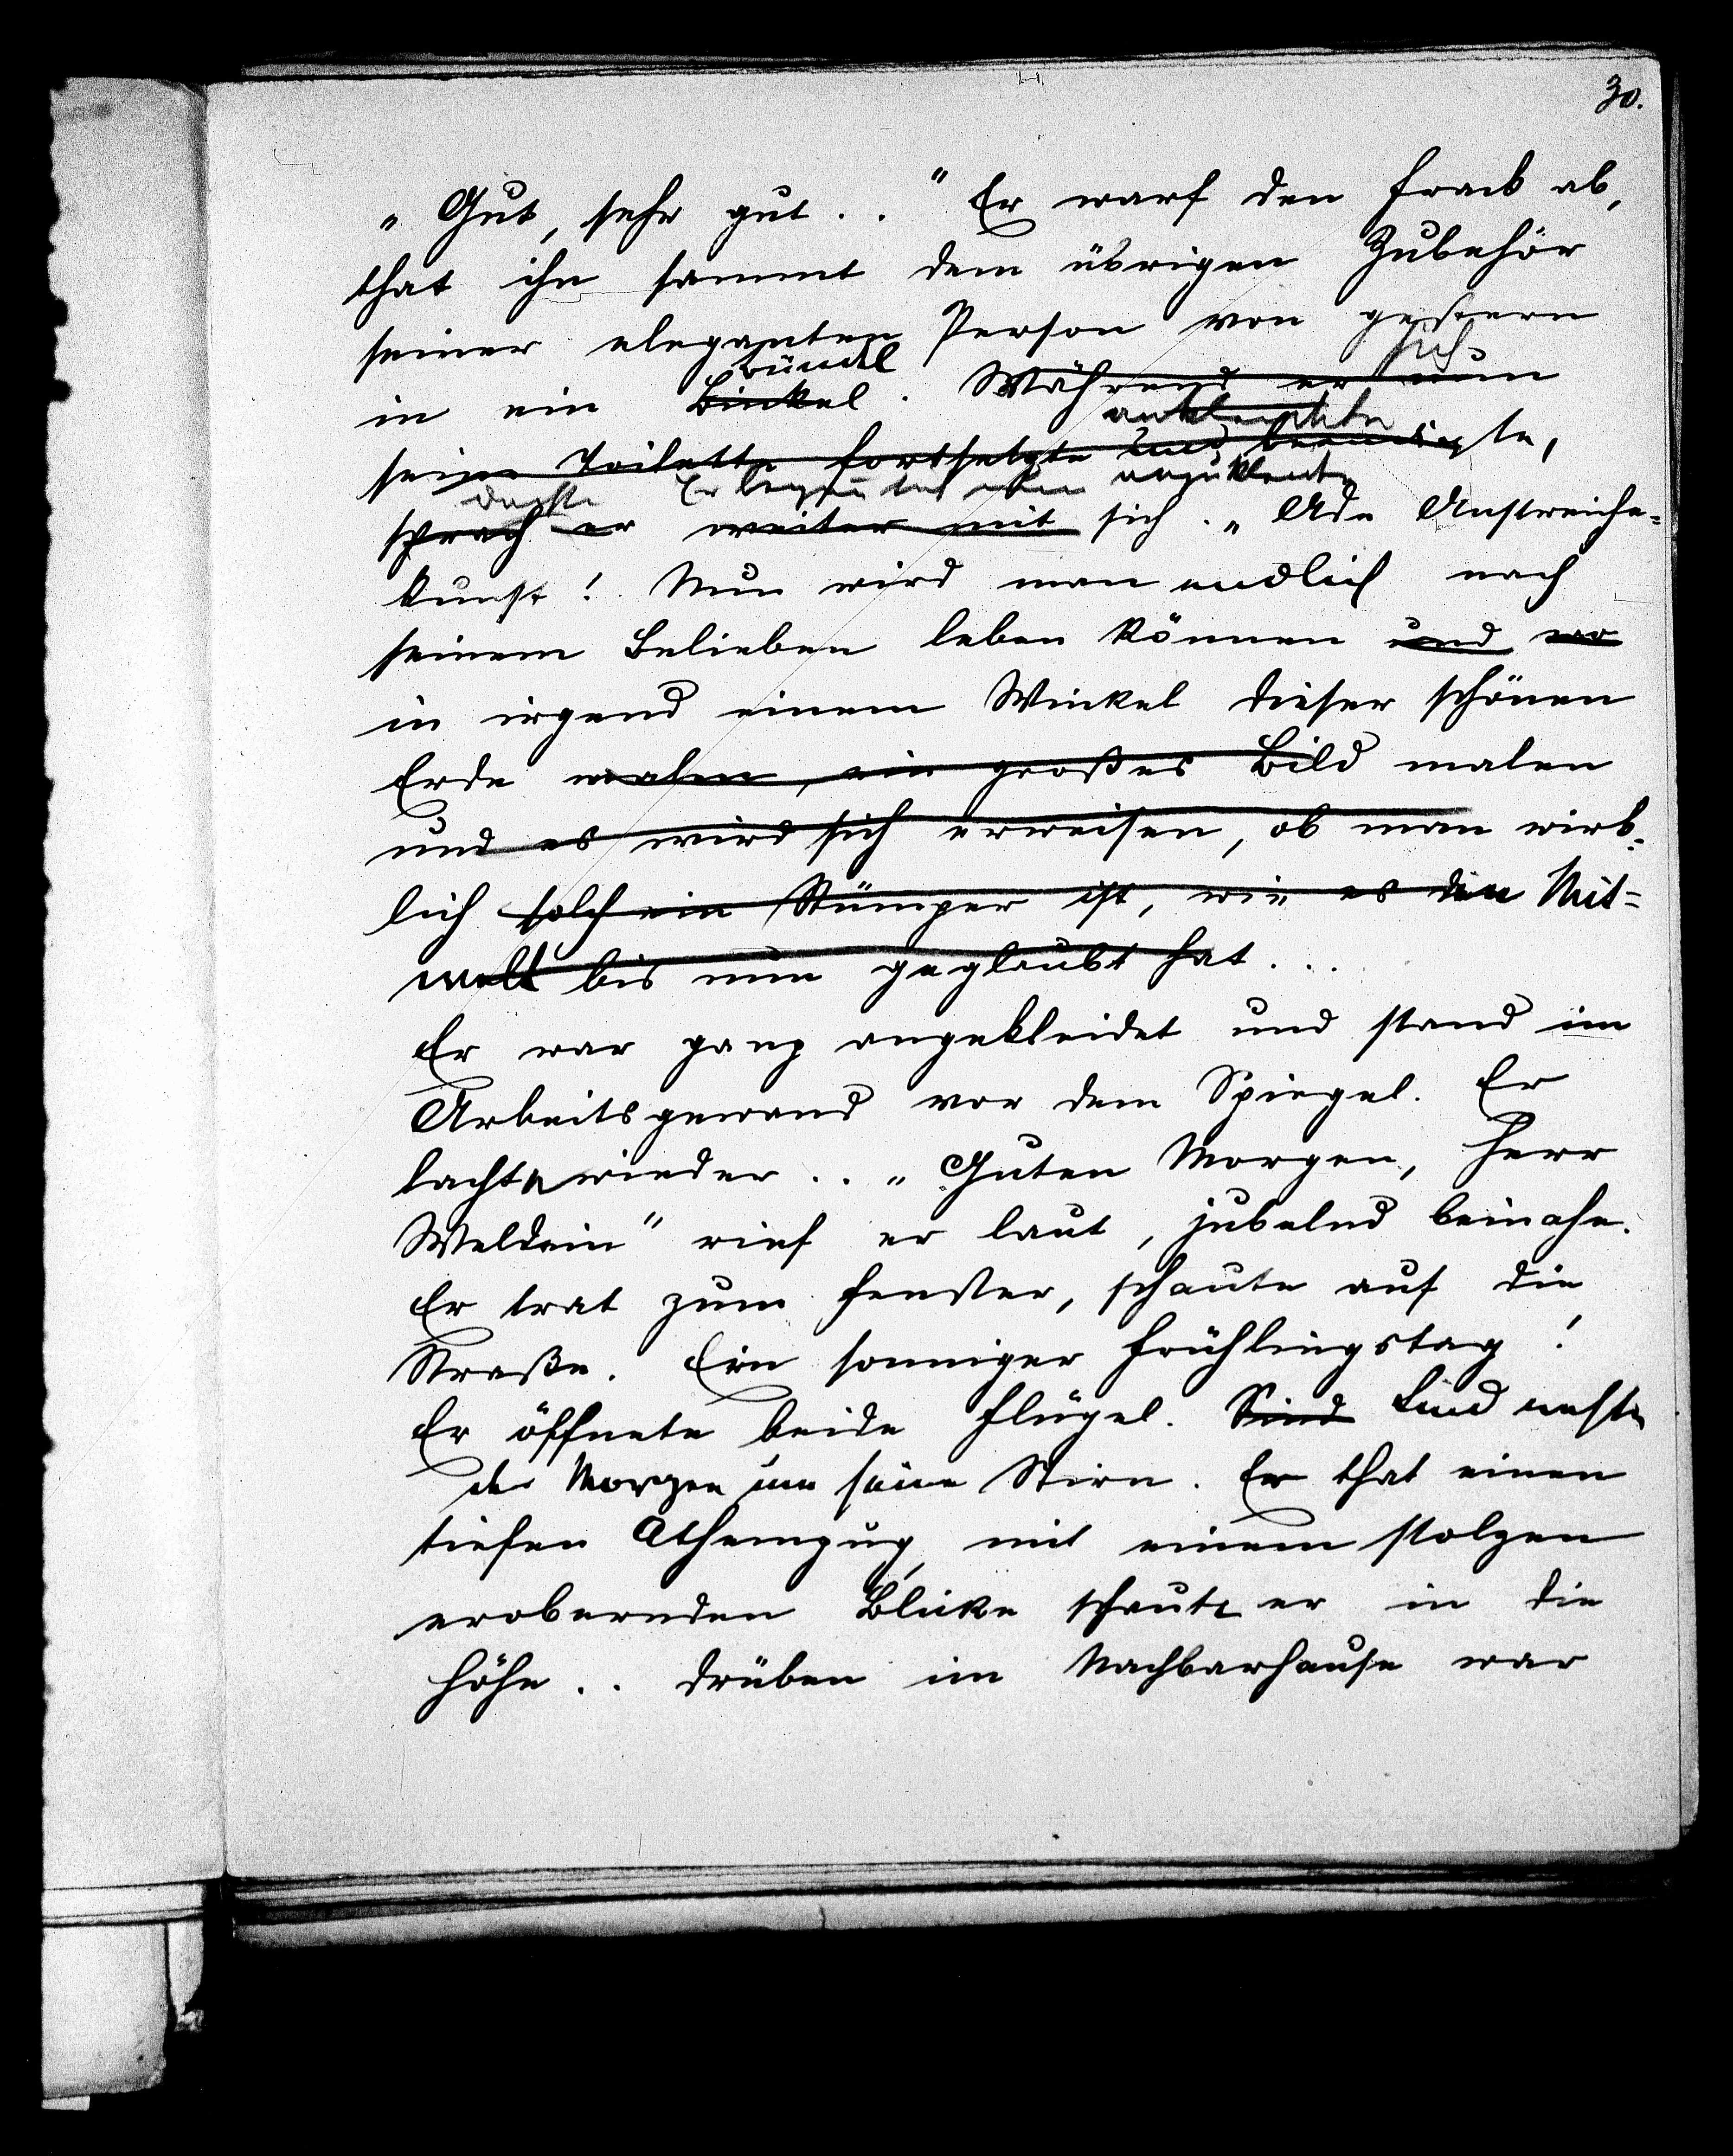 30.
„Gut, sehr gut . . " Er warf den Frack ab,
that ihn sammt dem übrigen Zubehör
seiner eleganten Person von gestern
Bündel sich
in ein Binkel. Während er nun
ankleidete
seine Toilette fortsetzte und beendigte,
dachte Er begann sich anzukleiden
sprach er weiter mit sich. „Ade Anstreiche=
kunst! Nun wird man endlich nach
seinem Belieben leben können und wo
in irgend einem Winkel dieser schönen
Erde malen, ein großes Bild malen
und es wird sich erweisen, ob man wirk=
lich solch ein Stümper ist, wie es die Mit=
welt bis nun geglaubt hat . . .
Er war ganz angekleidet und stand im
Arbeitsgewand vor dem Spiegel. Er
lachte wieder . . „Guten Morgen, Herr
Weldein" rief er laut, jubelnd beinahe.
Er trat zum Fenster, schaute auf die
Straße. Ein sonniger Frühlingstag!
Er öffnete beide Flügel. Sind Lind wehte
der Morgen um seine Stirn. Er that einen
tiefen Athemzug, mit einem stolzen
erobernden Blicke schaute er in die
Höhe . . drüben im Nachbarhause war